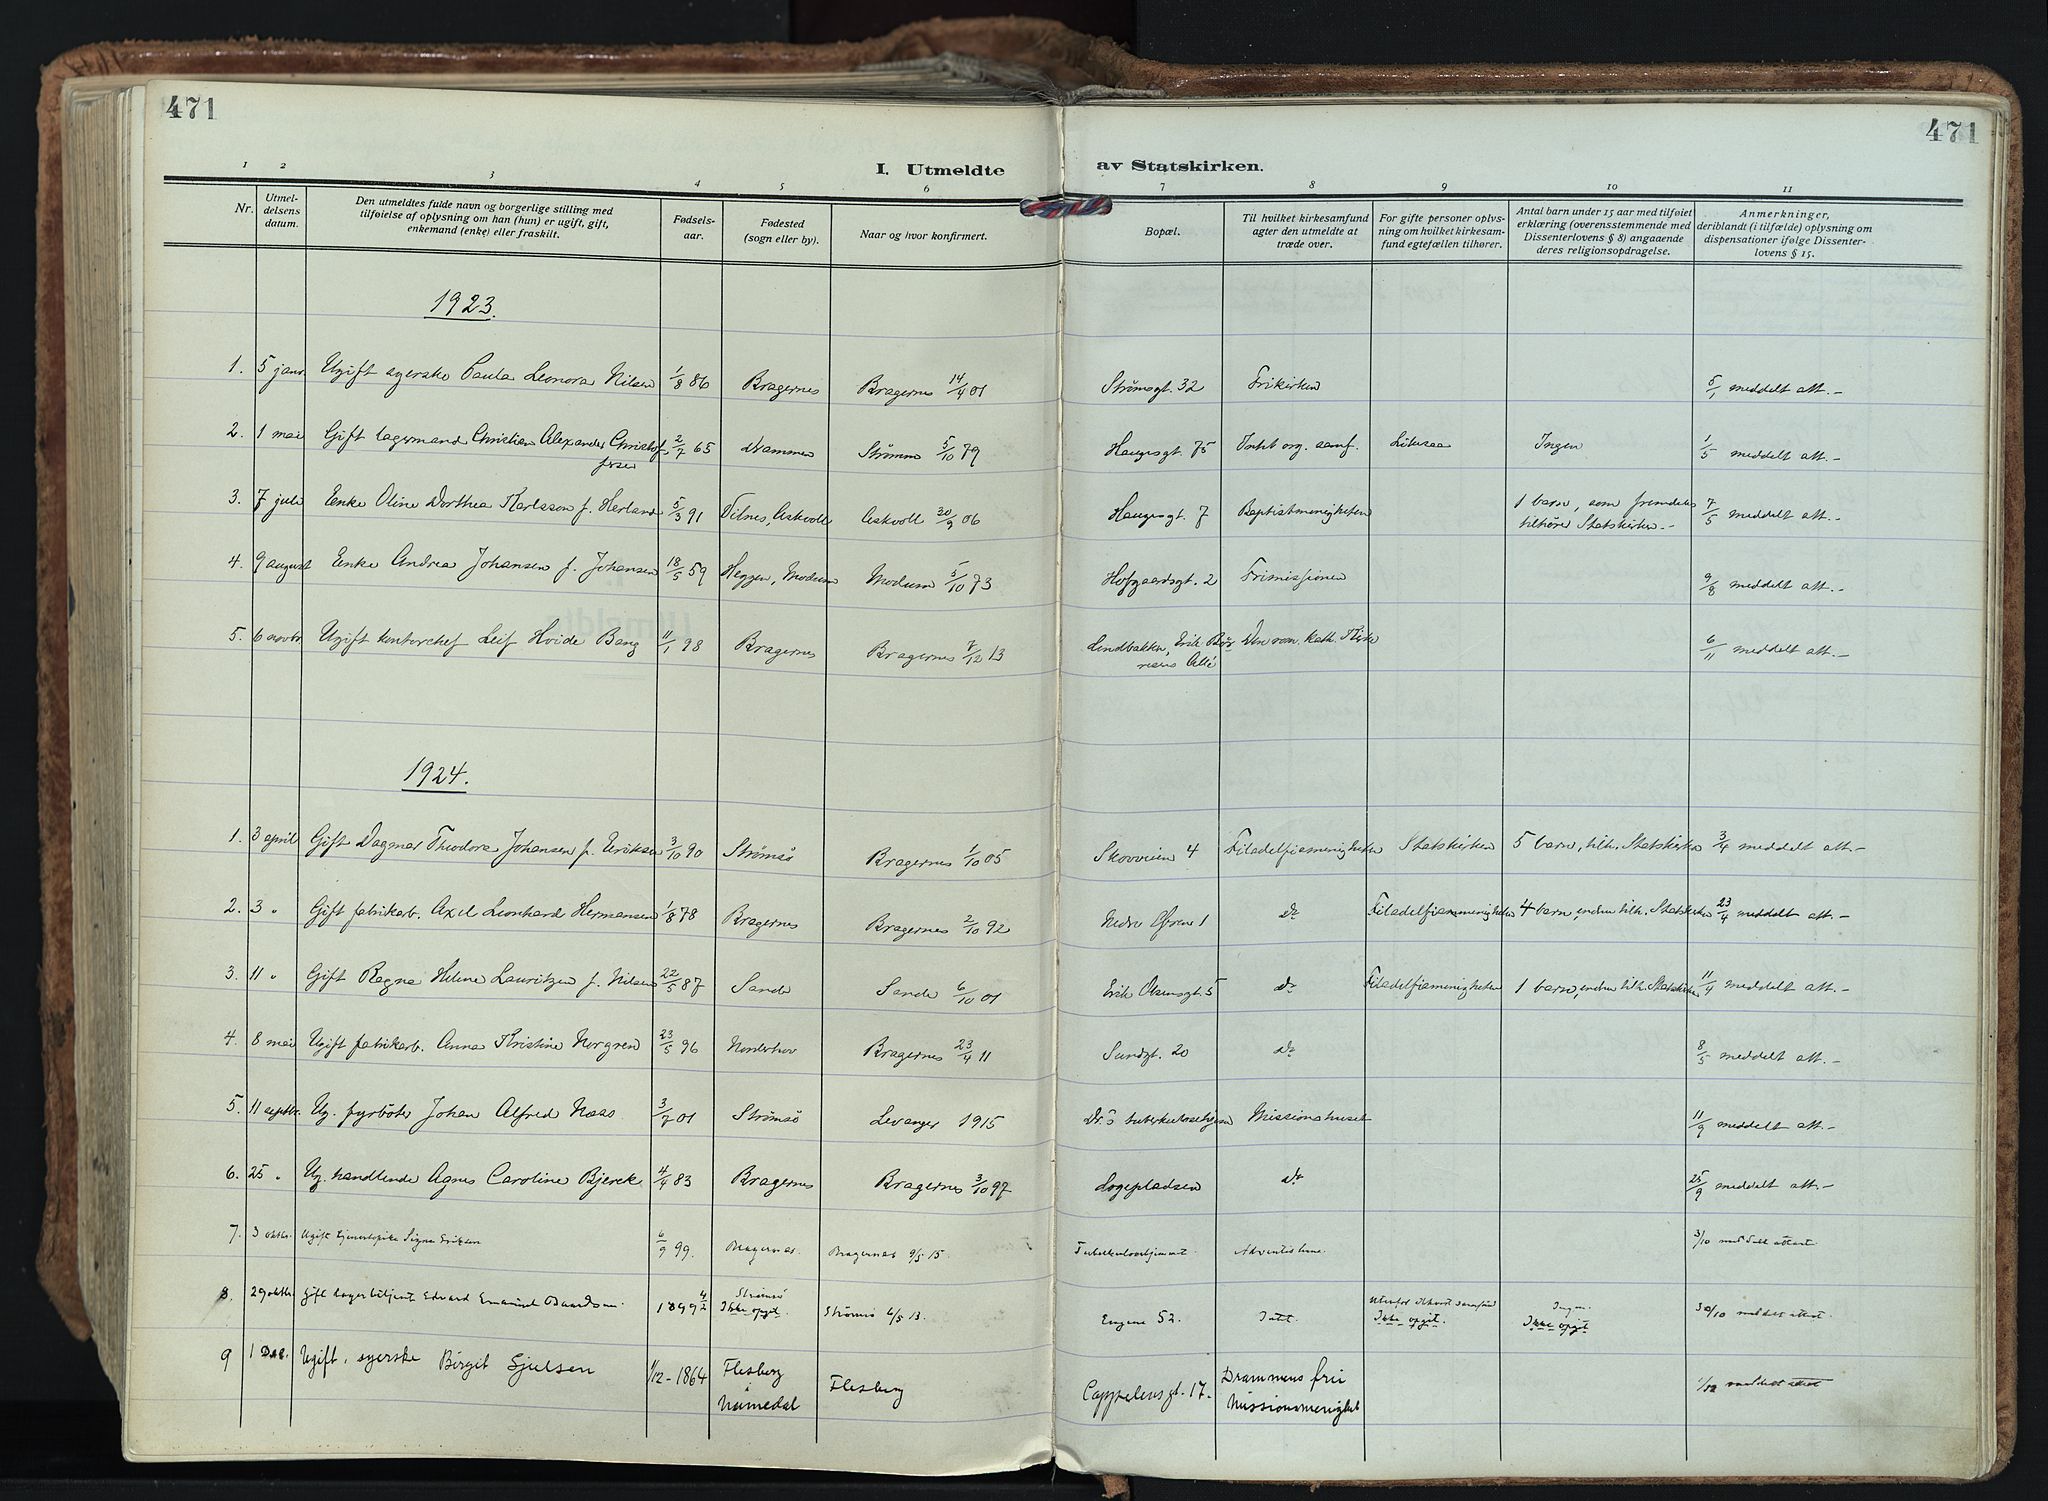 471
471
I. Utmeldte av Statskirken.
1 2 3 4 5 6 7 8 9 10 11
Nr.
Utmel-
delsens
datum.
Den utmeldtes fulde navn og borgerlige stilling med
tilføielse af oplysning om han (hun) er ugift, gift,
enkemand (enke) eller fraskilt.
Fødsels-
aar.
Fødested
(sogn eller by).
Naar og hvor konfirmert.
Bopæl.
Til hvilket kirkesamfund
agter den utmeldte at
træde over.
For gifte personer oplys-
ning om hvilket kirkesam-
fund egtefællen tilhører.
Antal barn under 15 aar med tilføiet
erklæring (overensstemmende med
Dissenterlovens § 8) angaaende
deres religionsopdragelse.
Anmerkninger,
deriblandt (i tilfælde) oplysning om
dispensationer ifølge Dissenter-
lovens § 15.
1923.
1. 5 janr. Ugift syerske Paula Leonora Nilsen 1/8 86 Bragernes Bragernes 14/4 01 Strømsgt. 32 Frikirken 5/1 meddelt att.-
2. 1 mai Gift lagermand Christian Alexander Christof- 2/7 65 Drammen Strømsø 5/10 79 Haugesgt. 75 Intet org. samf. Ingen 1/5 meddelt att.-
fersen
3. 7 juli Enke Oline Dorthea Karlsson f. Herland 5/3 91 Vilnes, Askvoll Askvoll 30/9 06 Haugesgt. 7 Baptistmenigheten 1 barn, som fremdeles 7/5 meddelt att.-
tilhører Statskirken.-
4. 9 august Enke Andrea Johansen f. Johansen 18/5 59 Heggen, Modum Modum 5/10 73 Hofgaardsgt. 2 Frimissionen 9/8 meddelt att.-
5. 6 novbr. Ugift kontorchef Leif Hvide Bang 11/1 98 Bragernes Bragernes 7/12 13 Lindbakken, Erik Bør- Den rom. kath. Kirke 6/11 meddelt att.-
resens Allé
1924.
1. 3 april Gift Dagmar Theodora Johansen f. Eriksen 3/10 90 Strømsø Bragernes 1/10 05 Skovveien 4 Filadelfiamenigheten Statskirken 5 barn, tilh. Statskirken 3/4 meddelt att.-
2. 3 " Gift fabrikarb. Axel Leonhard Hermansen 1/8 78 Bragernes Bragernes 2/10 92 Nedre Øren 1 do Filadelfiamenigheten 4 barn, endnu tilh. Statskirken 23/4 meddelt att.-
3. 11 " Gift Ragna Helene Lauritzen f. Nilsen 22/5 87 Sande Sande 6/10 01 Erik Olsensgt. 5 do Filadelfiamenigheten 1 barn, endnu tilh. Statskirken 11/4 meddelt att.-
4. 8 mai Ugift fabrikarb. Anna Kristine Norgren 23/5 96 Norderhov Bragernes 23/4 11 Sundgt. 20 do 8/5 meddelt att.-
5. 11 septbr. Ug. fyrbøter Johan Alfred Naas 3/7 01 Strømsø Levanger 1915 Dr.s tuberkulosehjem Missionshuset 11/9 meddelt att.-
6. 25 " Ug. handlende Agnes Caroline Bjerck 4/4 83 Bragernes Bragernes 3/10 97 Logepladsen do 25/9 meddelt att.-
7. 3 oktbr. Ugift tjenestepike Signe Eriksen 6/9 99. Bragernes. Bragernes 9/5 15. Tuberkulosehjemmet. Adventistene. 3/10 meddelt attest
8. 29 oktbr. Gift lagerbetjent Edvard Emanuel Baardsen. 1899 4/2 Strømsø Ikke opgit. Strømsø 4/5 13. Engene 52. Intet. Utenfor ethvert samfund Ikke opgit. Ingen. Ikke opgit 30/10 meldet attest
9 1 Des. Ugift. syerske Birgit Gjulsen 1/12 - 1864 Flesberg Flesberg Cappelensgt. 17. Drammens frie 1/12 meddelt attest
i Numedal missionsmenighet